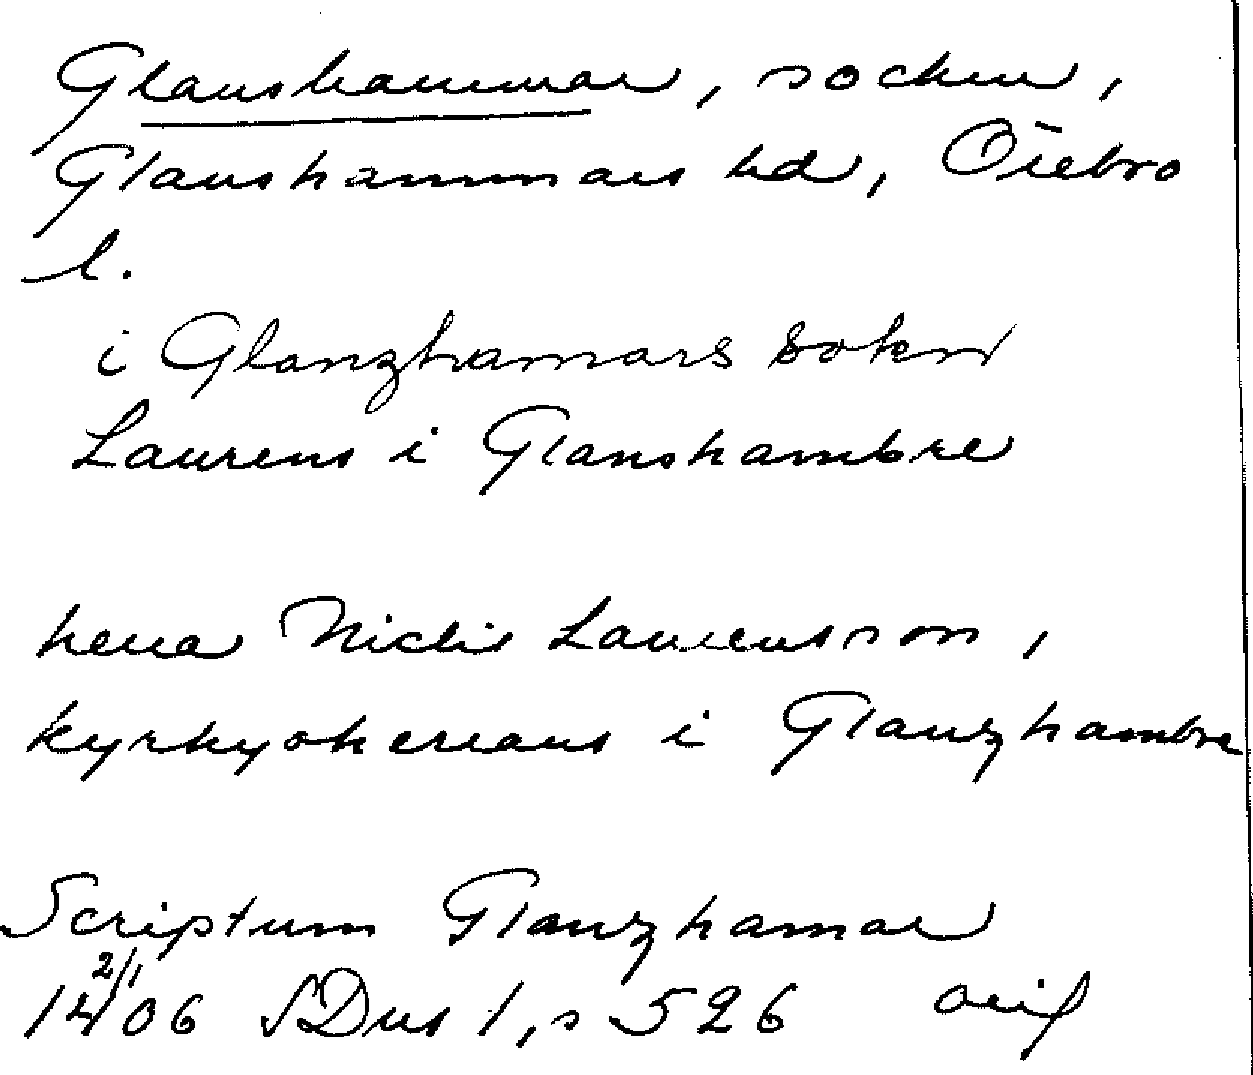 Glanshammar, socken,
Glanshammars hd, Örebro
l.
i Glanzhamars sokn
Laurens i Glanshambre
herra Niclis Laurensson,
kyrkyohereans i Glanzhambre
Scriptum Glanzhamar
2/1
1406 SDns 1, s 526 orig